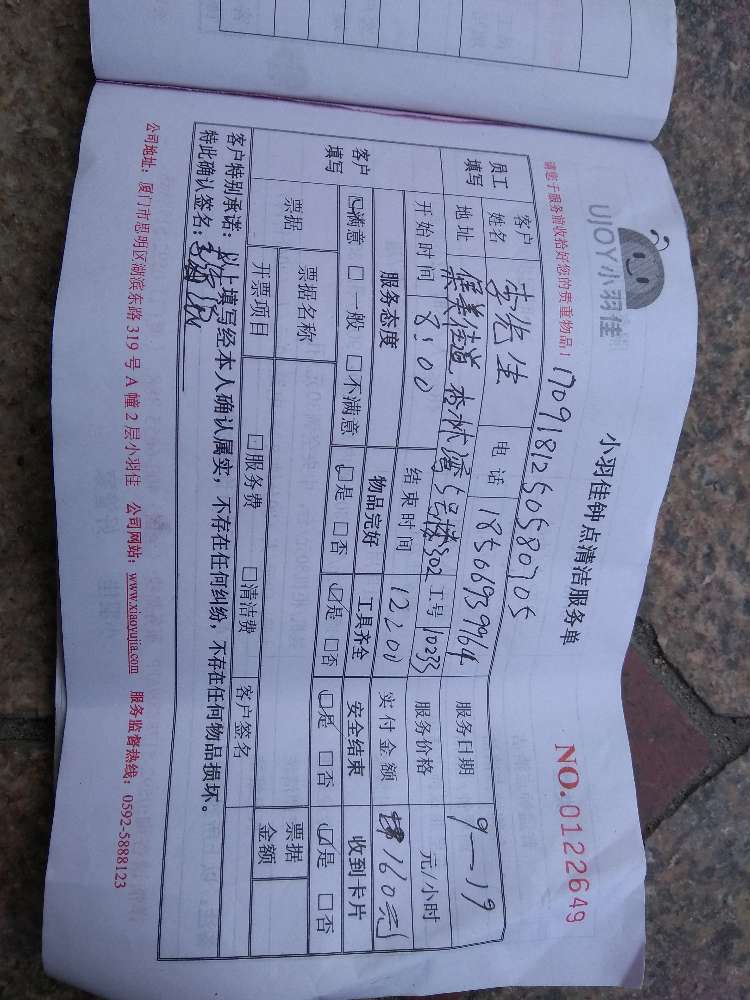 UJOY小羽佳
小羽佳钟点清洁服务单
NO.0122649
请您于服务前收拾好您的贵重物品！
1709181250580705
员工填写 客户姓名 李先生 电话 18566939964 服务日期 9-19
地址 杏林湾5号楼302 工号 10233 服务价格 元/小时
开始时间 8:00 结束时间 12:00 实付金额 160元
客户填写 服务态度 物品完好 工具齐全 安全结束 收到卡片
☑满意 □一般 □不满意 ☑是 □否 ☑是 □否 ☑是 □否 ☑是 □否
票据 票据名称 票据金额
开票项目 □服务费 □清洁费 客户签名
客户特别承诺：以上填写经本人确认属实，不存在任何纠纷，不存在任何物品损坏。
特此确认签名：
公司地址：厦门市思明区湖滨东路 319 号 A 幢 2 层小羽佳 公司网站：www.xiaoyujia.com 服务监督热线：0592-5888123